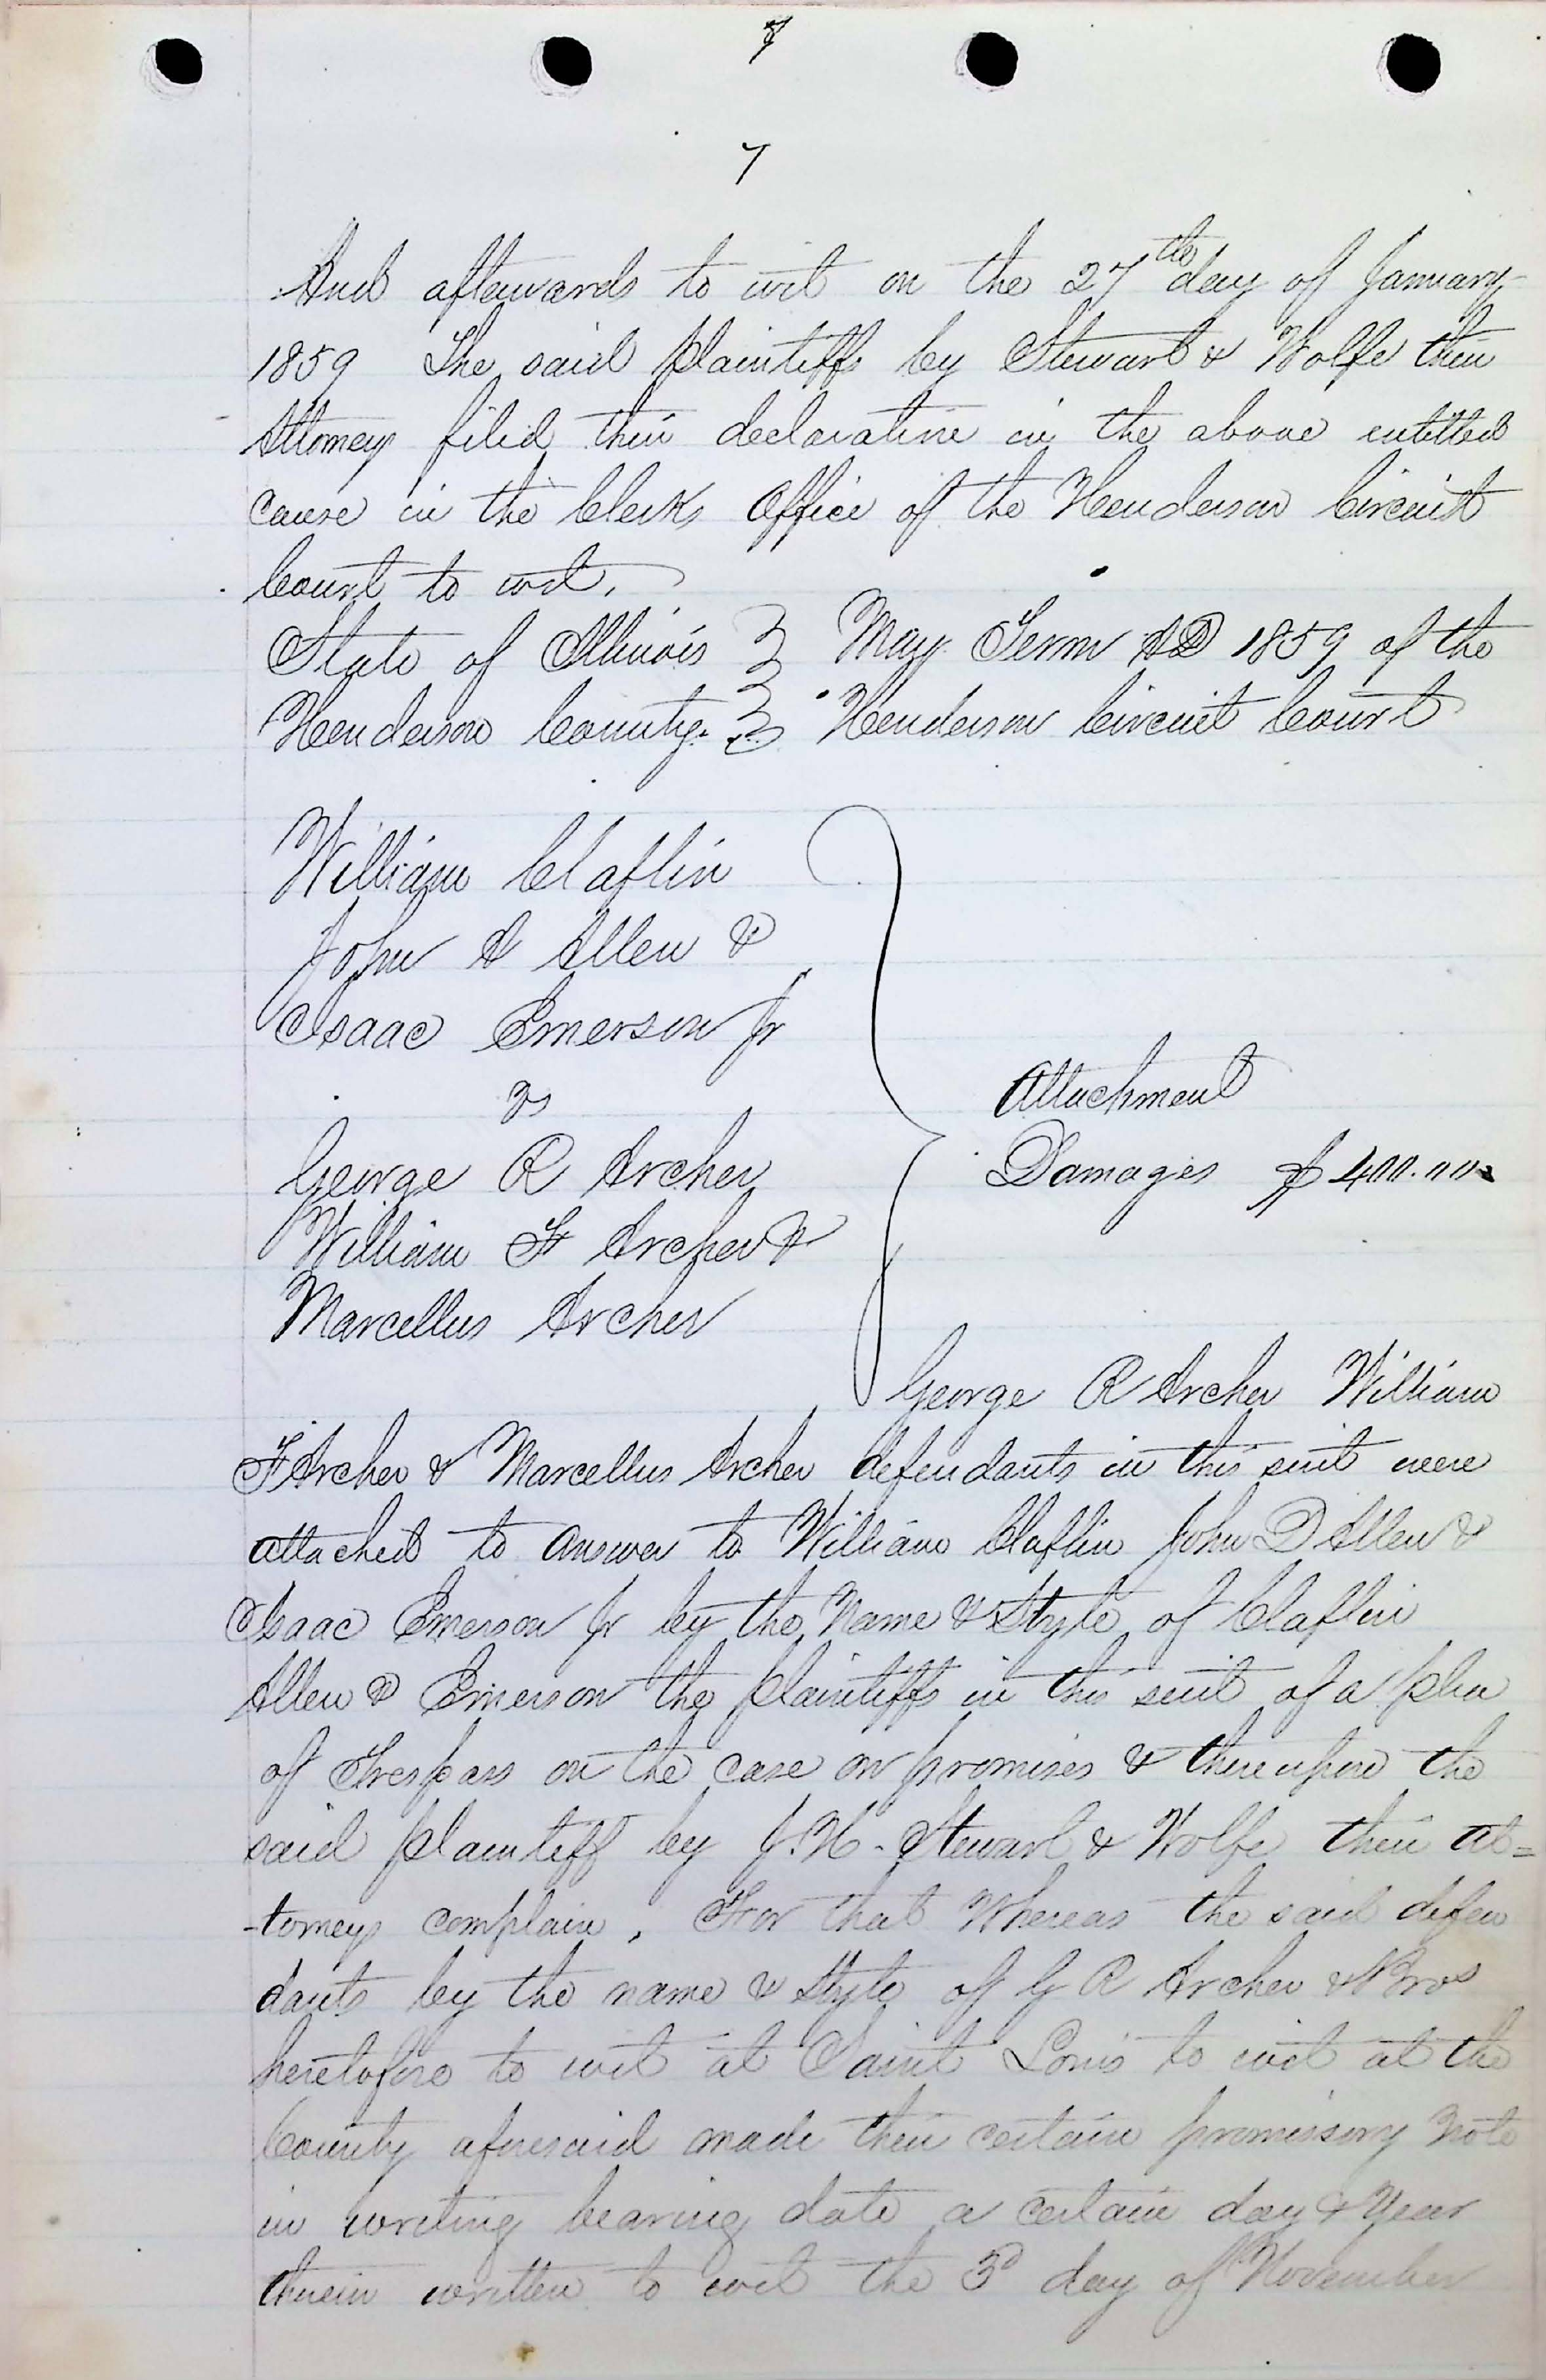 7
7
And afterwards to wit on the 27th day of January
1859 The said plaintiffs by Stewart & Wolfe their
Attorneys filed their declaration in the above entitled
cause in the Clerks Office of the Henderson Circuit
Court to wit.
State of Illinois } May Term AD 1859 of the
Henderson County. } Henderson Circuit Court
William Claflin
John A Allen &
Isaac Emerson Jr
vs
George R Archer
William F Archer &
Marcellus Archer
Attachment
Damages $400.00
George R Archer William
F Archer & Marcellus Archer defendants in this suit were
attached to answer to William Claflin John D Allen &
Isaac Emerson Jr by the Name & Style of Claflin
Allen & Emerson the plaintiffs in this suit of a plea
of Trespass on the case on promises & thereupon the
said plaintiff by J. H. Stewart & Wolfe their at=
-torneys complain, For that Whereas the said defen
dants by the name & Style of G R Archer & Bros
heretofore to wit at Saint Louis to wit at the
County aforesaid made their certain promissory note
in writing bearing date a certain day & Year
therein written to wit the 3d day of November